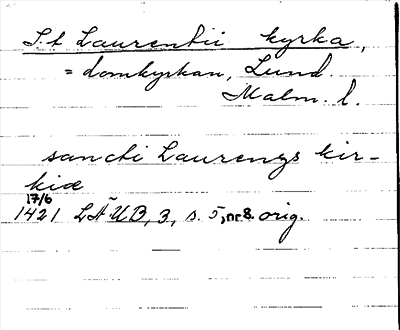 S:t Laurentii kyrka,
= domkyrkan, Lund.
Malm. l.
sancti Laurengs kir-
kiæ
17/6
1421 LÄUB, 3, s. 5, nr 8 orig.